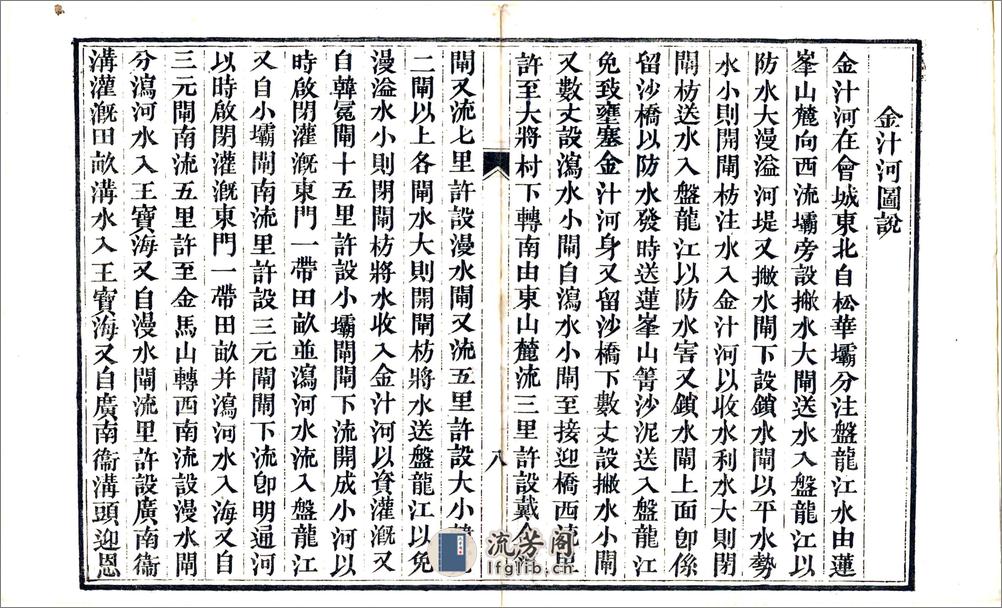 金汁河圖說
金汁河在會城東北自松華壩分注盤龍江水由蓮
峯山麓向西流壩旁設撇水大閘送水入盤龍江以
防水大漫溢河堤又撇水閘下設鎖水閘以平水勢
水小則開閘枋注水入金汁河以收水利水大則閉
閘枋送水入盤龍江以防水害又鎖水閘上面卽係
留沙橋以防水發時送蓮峯山箐沙泥送入盤龍江
免致壅塞金汁河身又留沙橋下數丈設撇水小閘
又數丈設瀉水小閘自瀉水小閘至接迎橋西流里
許至大將村下轉南由東山麓流三里許設戴金
八
閘又流七里許設漫水閘又流五里許設大小韓
二閘以上各閘水大則開閘枋將水送盤龍江以免
漫溢水小則閉閘枋將水收入金汁河以資灌溉又
自韓冕閘十五里許設小壩閘閘下流開成小河以
時啟閉灌溉東門一帶田畝並瀉河水流入盤龍江
又自小壩閘南流里許設三元閘閘下流卽明通河
以時啟閉灌溉東門一帶田畝并瀉河水入海又自
三元閘南流五里許至金馬山轉西南流設漫水閘
分瀉河水入王寶海又自漫水閘流里許設廣南衞
溝灌溉田畝溝水入王寶海又自廣南衞溝頭迎恩
流芳阁
lfglib.com